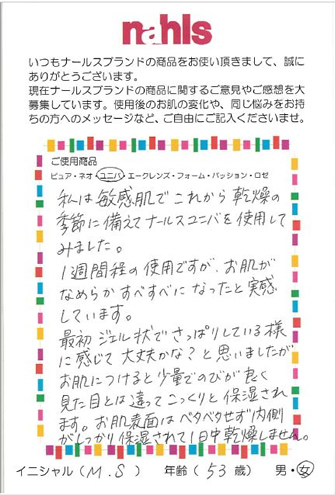 nahls
いつもナールスブランドの商品をお使い頂きまして、誠に
ありがとうございます。
現在ナールスブランドの商品に関するご意見やご感想を大
募集しています。使用後のお肌の変化や、同じ悩みをお持
ちの方へのメッセージなど、ご自由にご記入くださいませ。
ご使用商品
ピュア・ネオ・ユニバ・エークレンズ・フォーム・パッション・ロゼ
私は敏感肌でこれから乾燥の
季節に備えてナールスユニバを使用して
みました。
1週間程の使用ですが、お肌が
なめらかすべすべになったと実感
しています。
最初ジェル状でさっぱりしている様
に感じて大丈夫かな?と思いましたが
お肌につけると少量でのびが良く
見た目とは違ってこっくりと保湿され
ます。お肌表面はベタベタせず内側
がしっかり保湿されて1日中乾燥しません。
イニシャル(M.S) 年齢(53歳) 男・女